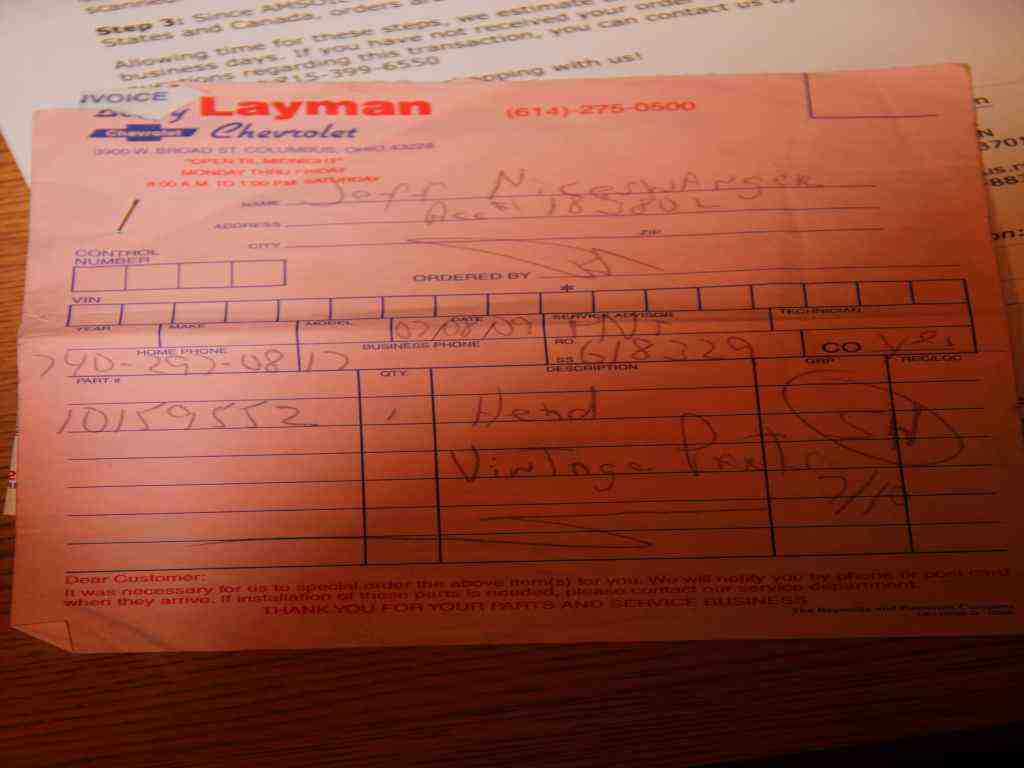 Step 3: Since AMSOIL
States and Canada, orders are
Allowing time for these steps, we estimate
business days. If you have not received your order
regarding this transaction, you can contact us by
815-399-6550
hopping with us!
IVOICE
Layman
Chevrolet
Chevrolet
(614)-275-0500
3900 W. BROAD ST. COLUMBUS, OHIO 43228
"OPEN TIL MIDNIGHT"
MONDAY THRU FRIDAY
8:00 A.M. TO 1:00 P.M. SATURDAY
NAME Jeff Niceswanger
ADDRESS Acct 185802
CITY ZIP
CONTROL
NUMBER
ORDERED BY
VIN *
YEAR MAKE MODEL DATE 07/08/09 SERVICE ADVISOR TECHNICIAN
HOME PHONE BUSINESS PHONE RO. CO yes
SS 618329 GRP REC/LOC
PART # QTY. DESCRIPTION
10159552 1 Head
Vintage Parts
7/10
Dear Customer:
It was necessary for us to special order the above item(s) for you. We will notify you by phone or post card
when they arrive. If installation of these parts is needed, please contact our service department.
THANK YOU FOR YOUR PARTS AND SERVICE BUSINESS
The Reynolds and Reynolds Company